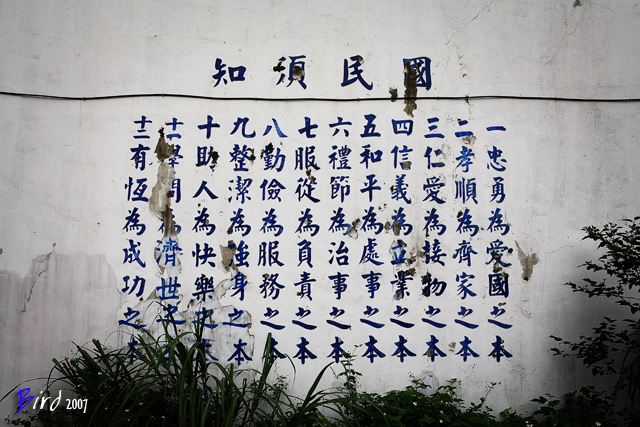 國民須知
一忠勇為愛國之本
二孝順為齊家之本
三仁愛為接物之本
四信義為立業之本
五和平為處事之本
六禮節為治事之本
七服從為負責之本
八勤儉為服務之本
九整潔為強身之本
十助人為快樂之本
十一學問為濟世之本
十二有恆為成功之本
Bird 2007